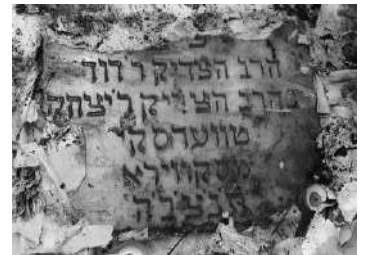 הרב הצדיק ר דוד
בהרב הצדיק ר יצחק
טווערסקי
מסקווירא
תנצבה